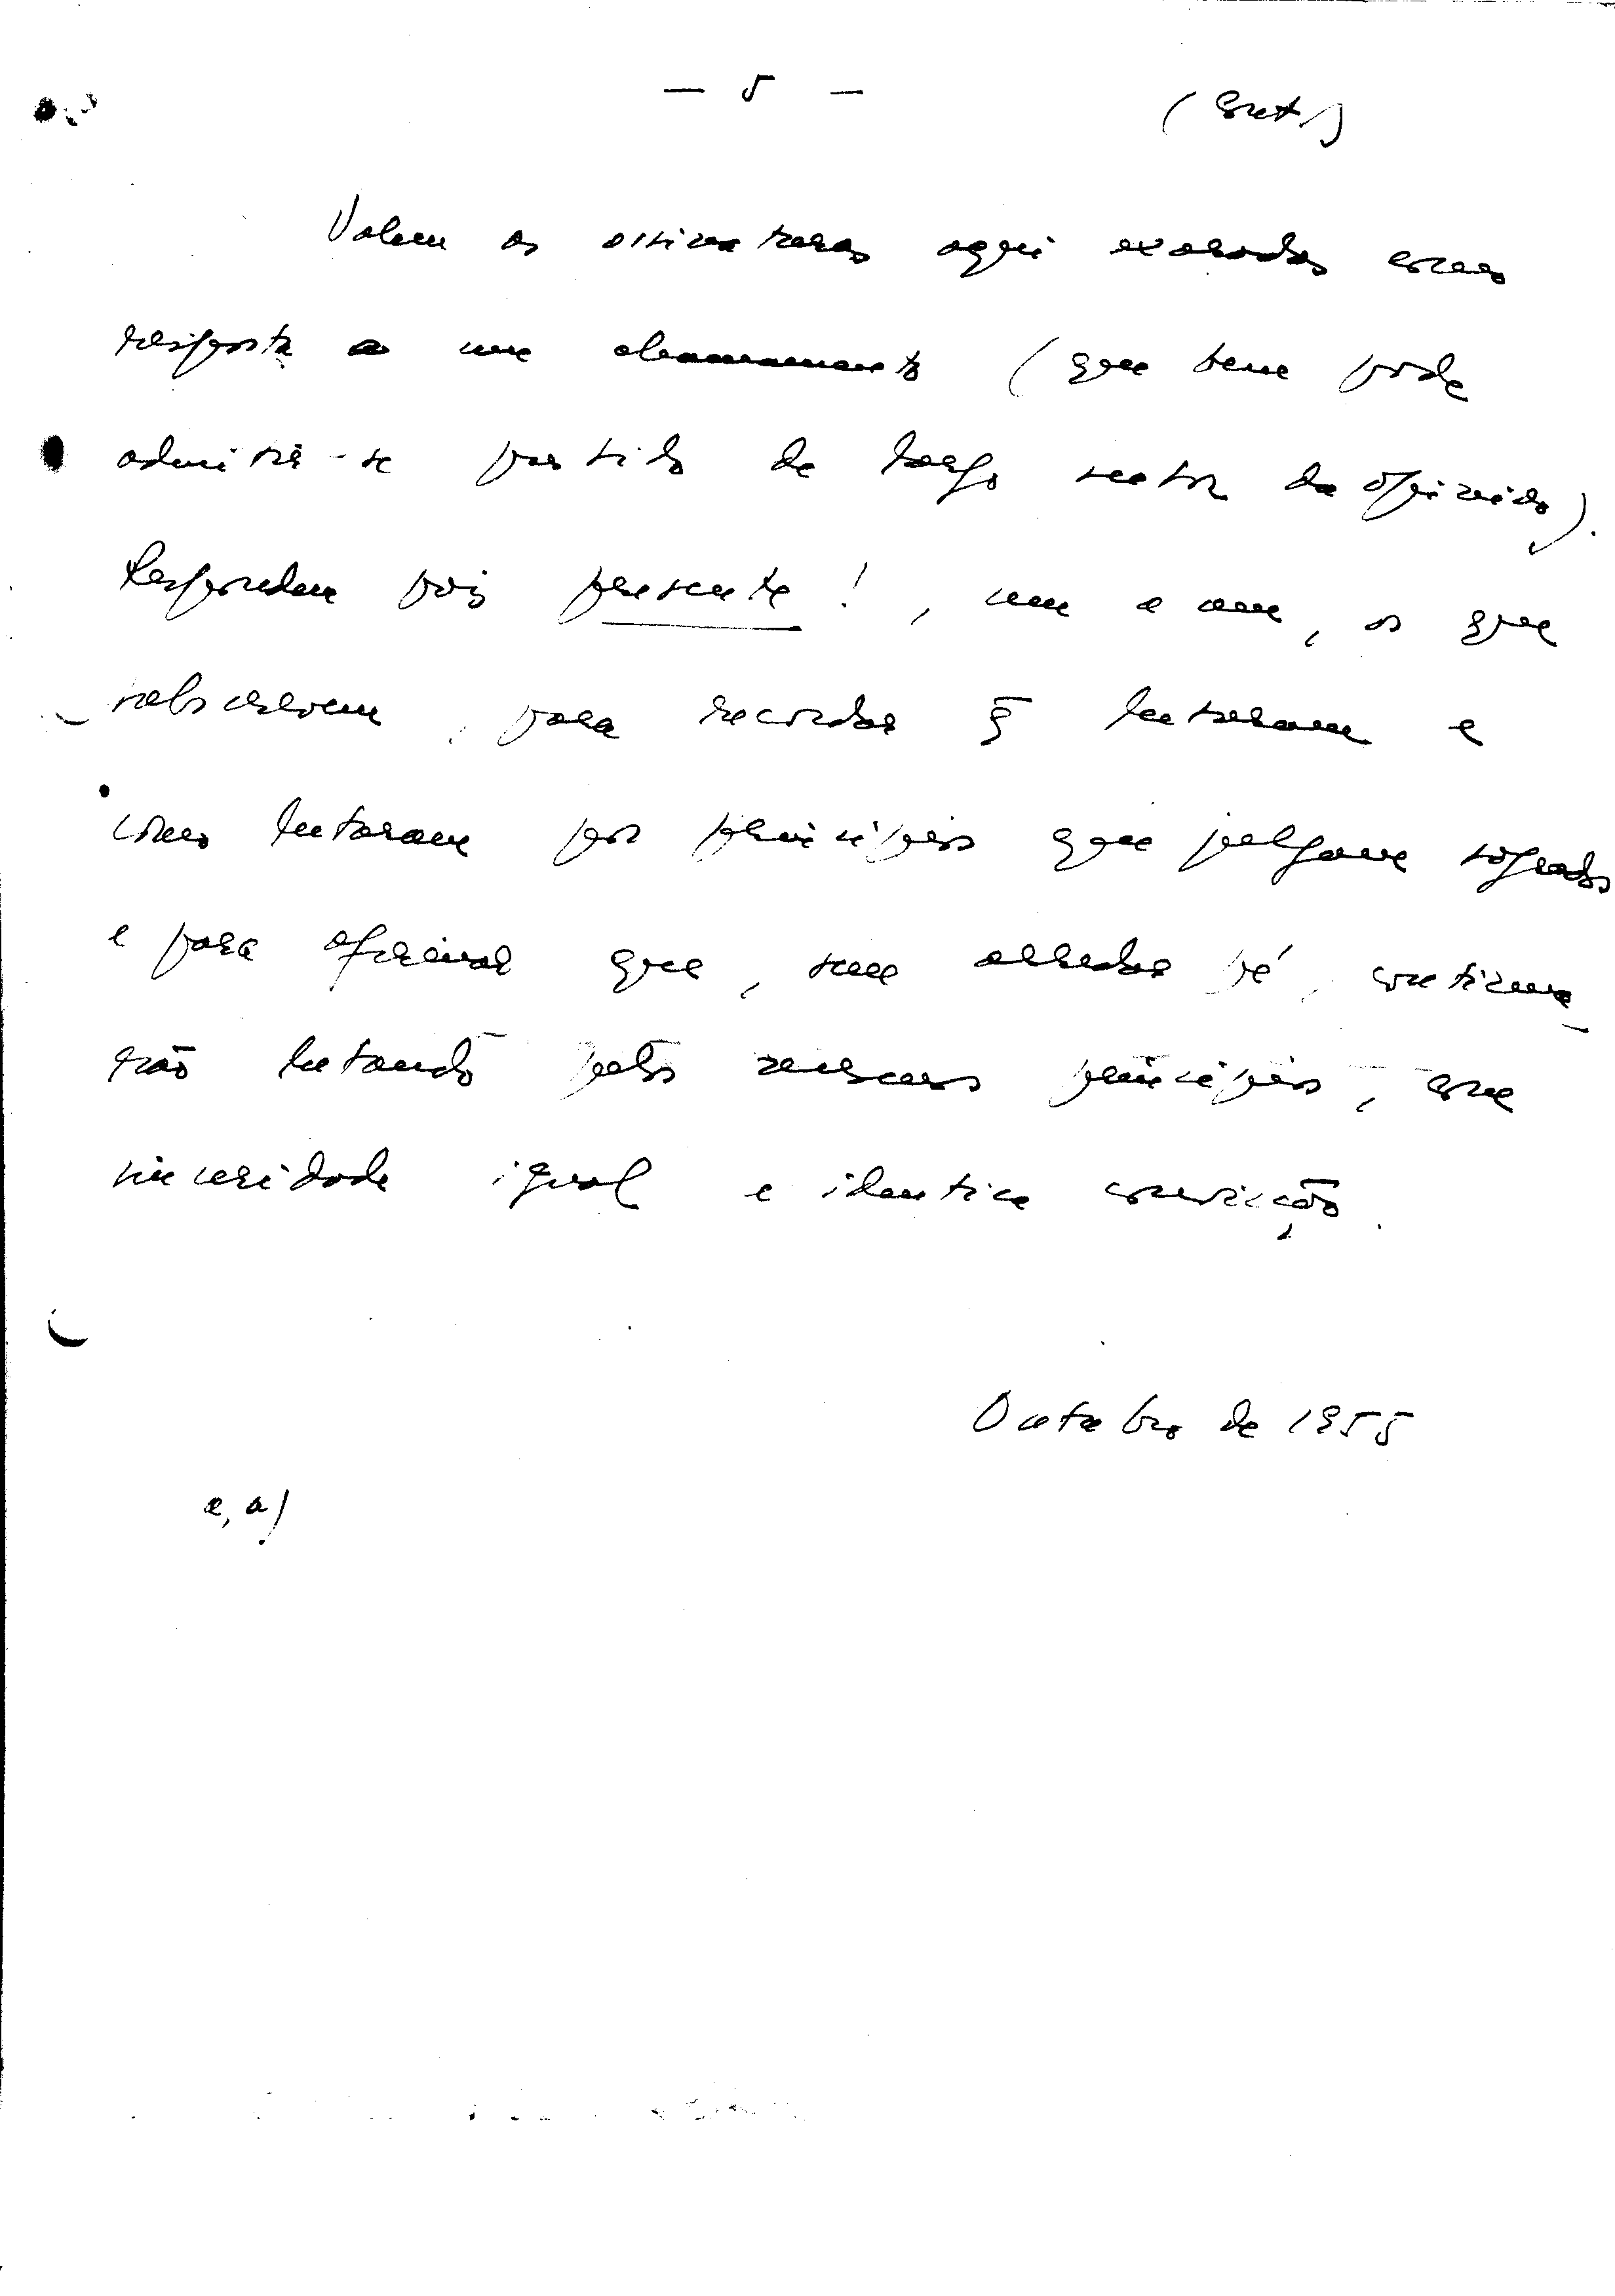 — 5 — (Cont.)
Valem as assinaturas aqui exaradas como
resposta a um chamamento (que bem pode
admitir-se partido de largo sector da opinião).
Respondem pois presente!, um a um, os que
subscrevem, para recordar q̄ lutaram e
como lutaram por principios que julgam sagrados
e para afirmar que, sem arredar pé, continua-
rão lutando pelos mesmos principios, com
sinceridade igual e identica convicção.
Outubro de 1955
a, a)